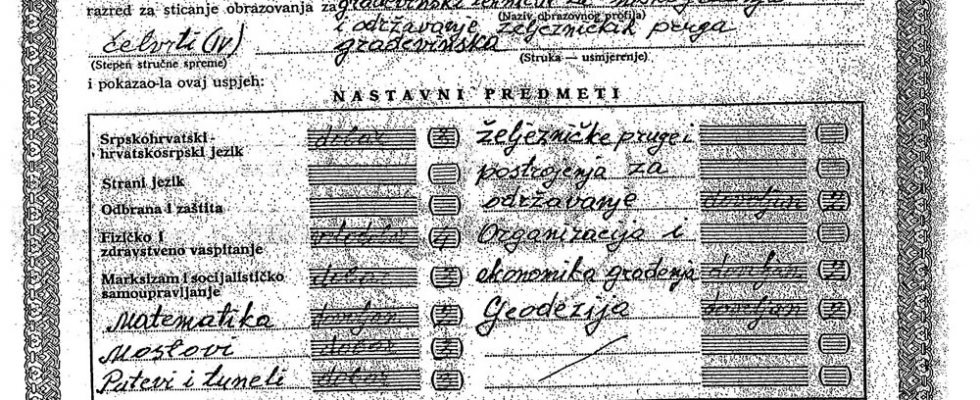 razred za sticanje obrazovanja za građevinski tehničar za niskogradnju
(Naziv obrazovnog profila)
i održavanje željezničkih pruga
četvrti (IV) građevinska
(Stepen stručne spreme) (Struka — usmjerenje)
i pokazao-la ovaj uspjeh:
NASTAVNI PREDMETI
Srpskohrvatski - dobar (3) željezničke pruge i
hrvatskosrpski jezik
Strani jezik postrojenja za
Odbrana i zaštita održavanje dovoljan (2)
Fizičko i vrlodobar (4) Organizacija i
zdravstveno vaspitanje
Marksizam i socijalističko dobar (3) ekonomika građenja dovoljan (2)
samoupravljanje
Matematika dovoljan (2) Geodezija dovoljan (2)
Mostovi dobar (3)
Putevi i tuneli dobar (3)